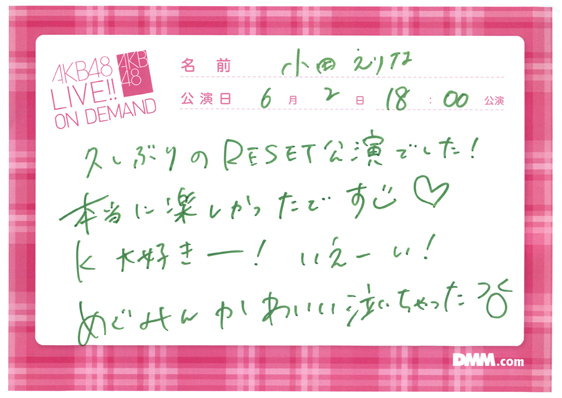 AKB48
LIVE!!
ON DEMAND
AKB
48
名前 小田えりな
公演日 6月2日 18:00公演
久しぶりのRESET公演でした!
本当に楽しかったですじ♡
K大好きー!いえーい!
めぐみんかわいい泣いちゃった
DMM.com